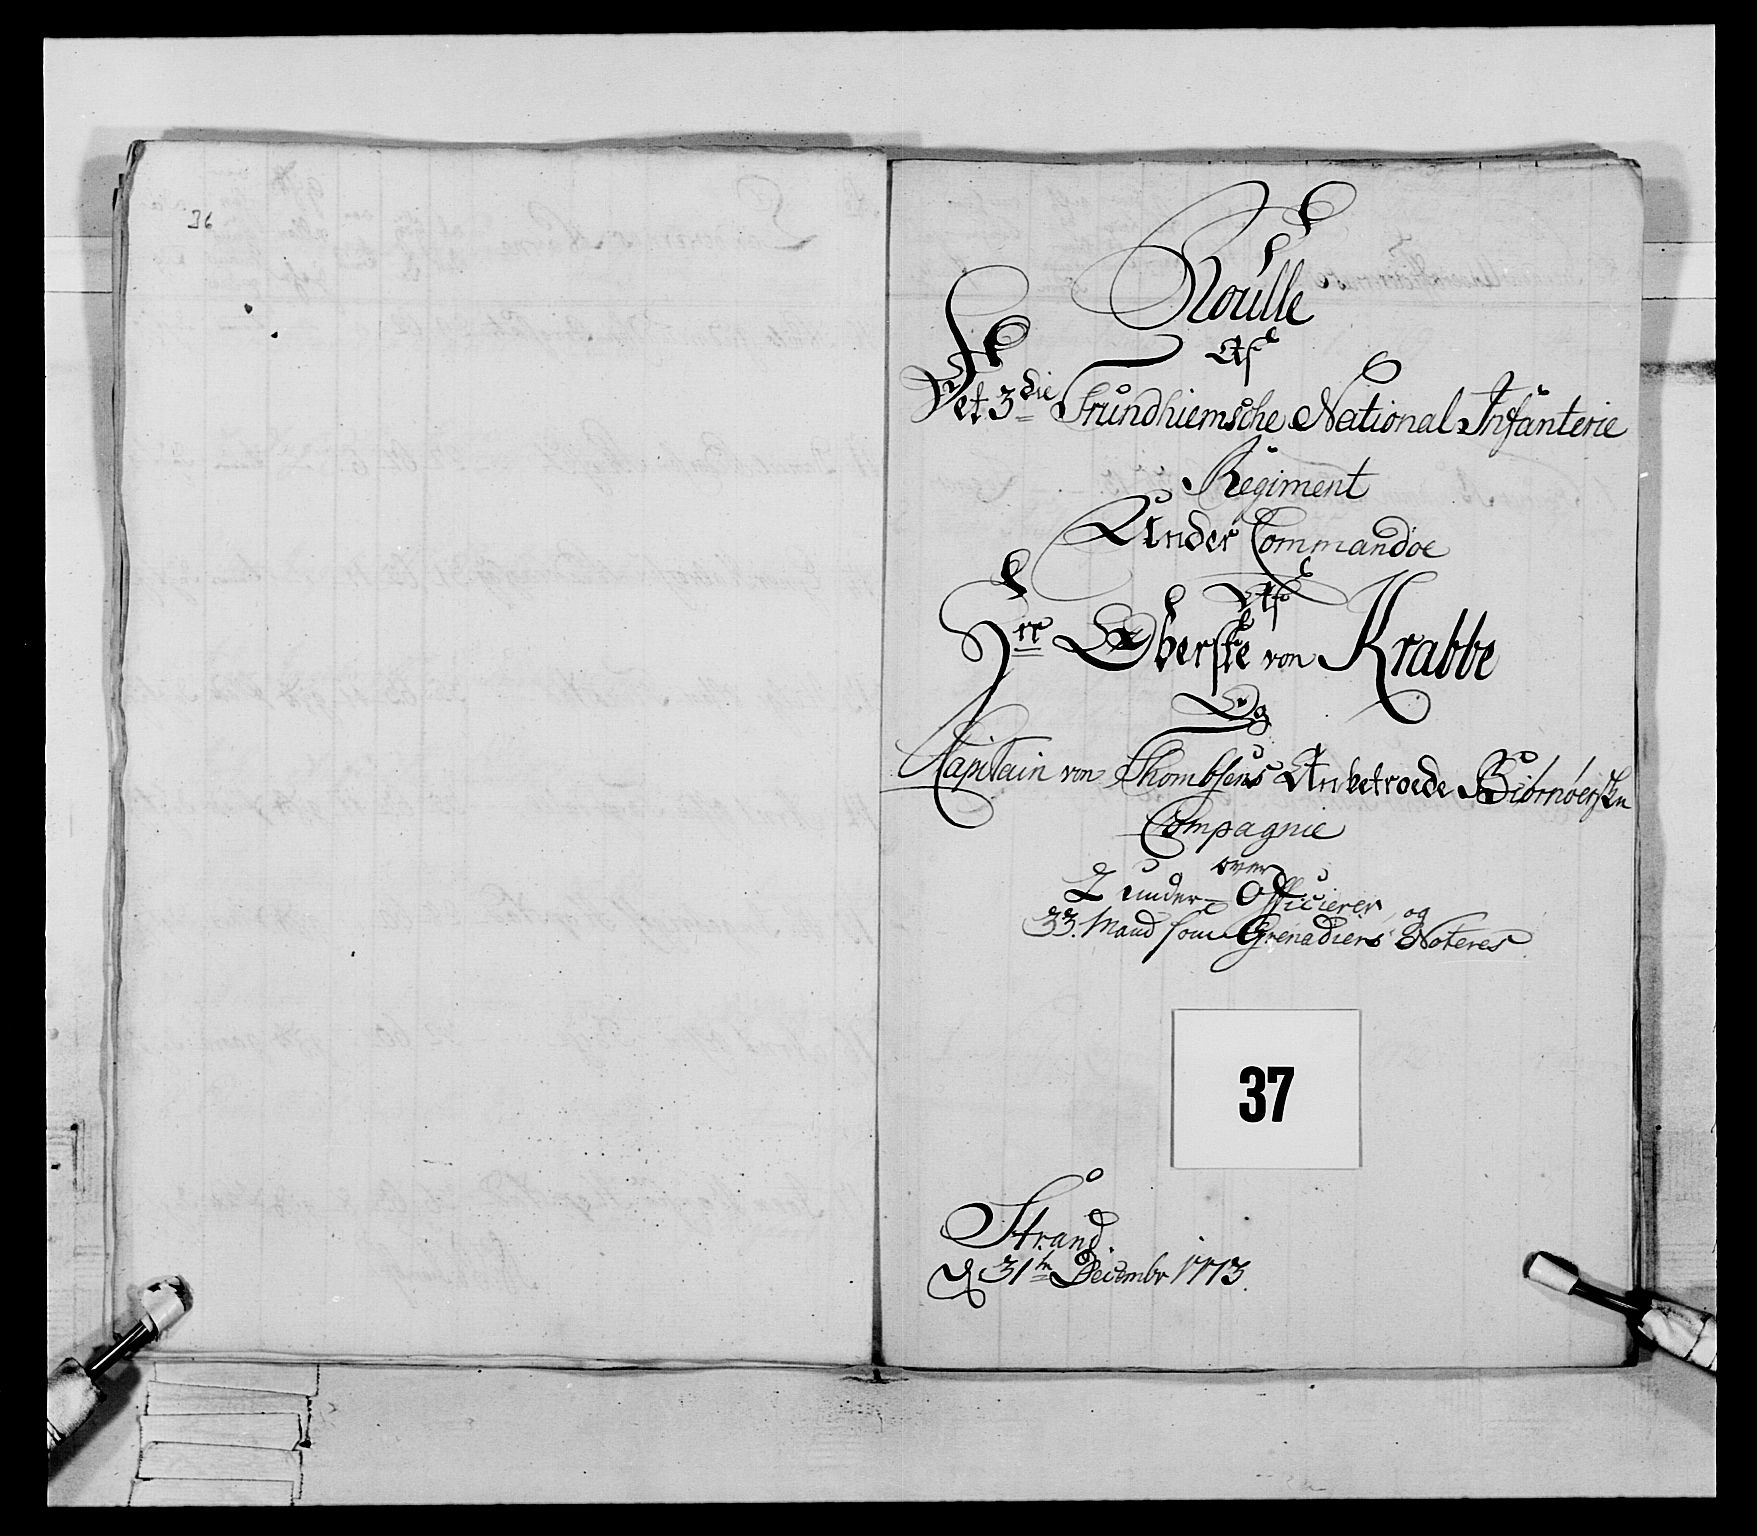 36
Roulle
Af
Det 3die Trundhiemsche National Infanterie
Regiment
Under Commandoe
Af
Hrr Oberste von Krabbe
Og
Capitain von Thombsens Anbetroede Biørnøerske
Compagnie
over
2 under Officierer og
33. Mand som Grenadiers Noteres
37
Strand
d 31te Decembr 1773.